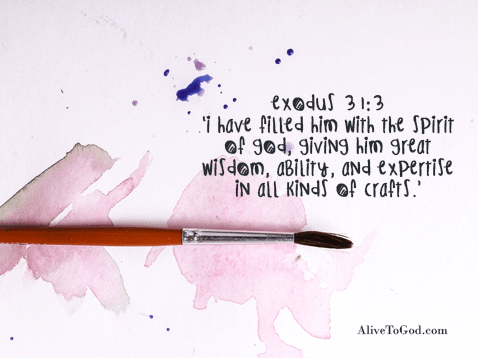 exodus 31:3
'i have filled him with the Spirit
of god, giving him great
wisdom, ability, and expertise
in all kinds of crafts.'
AliveToGod.com